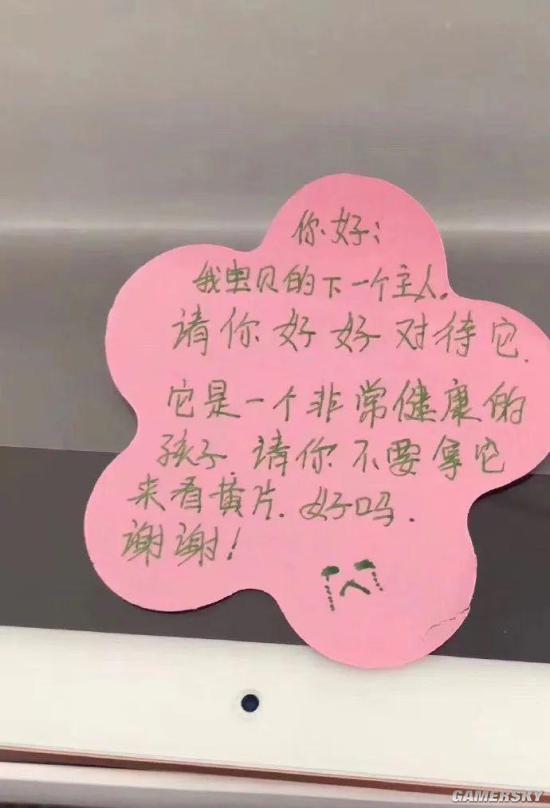 你好:
我虫贝的下一个主人.
请你好好对待它.
它是一个非常健康的
孩子.请你不要拿它
来看黄片.好吗.
谢谢!
GAMERSKY